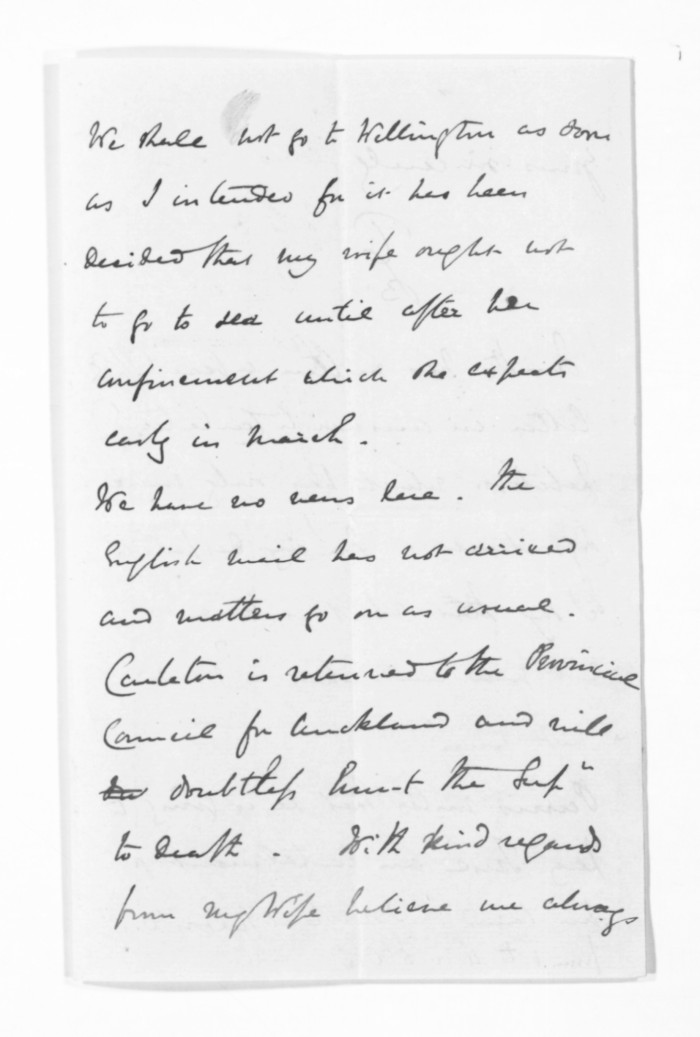 We shall not go to Wellington as soon
as I intended for it has been
decided that my wife ought not
to go to sea until after her
confinement which she expects
early in March.
We have no news here. The
English mail has not arrived
and matters go on as usual.
Carleton is returned to the Provincial
Council for Auckland and will
doubtless hunt the Supt
to death. With kind regards
from my Wife believe me always